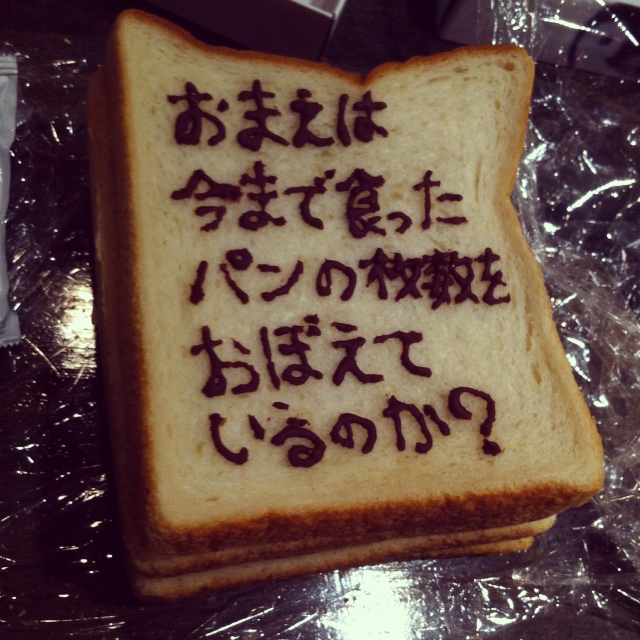 おまえは
今まで食った
パンの枚数を
おぼえて
いるのか?